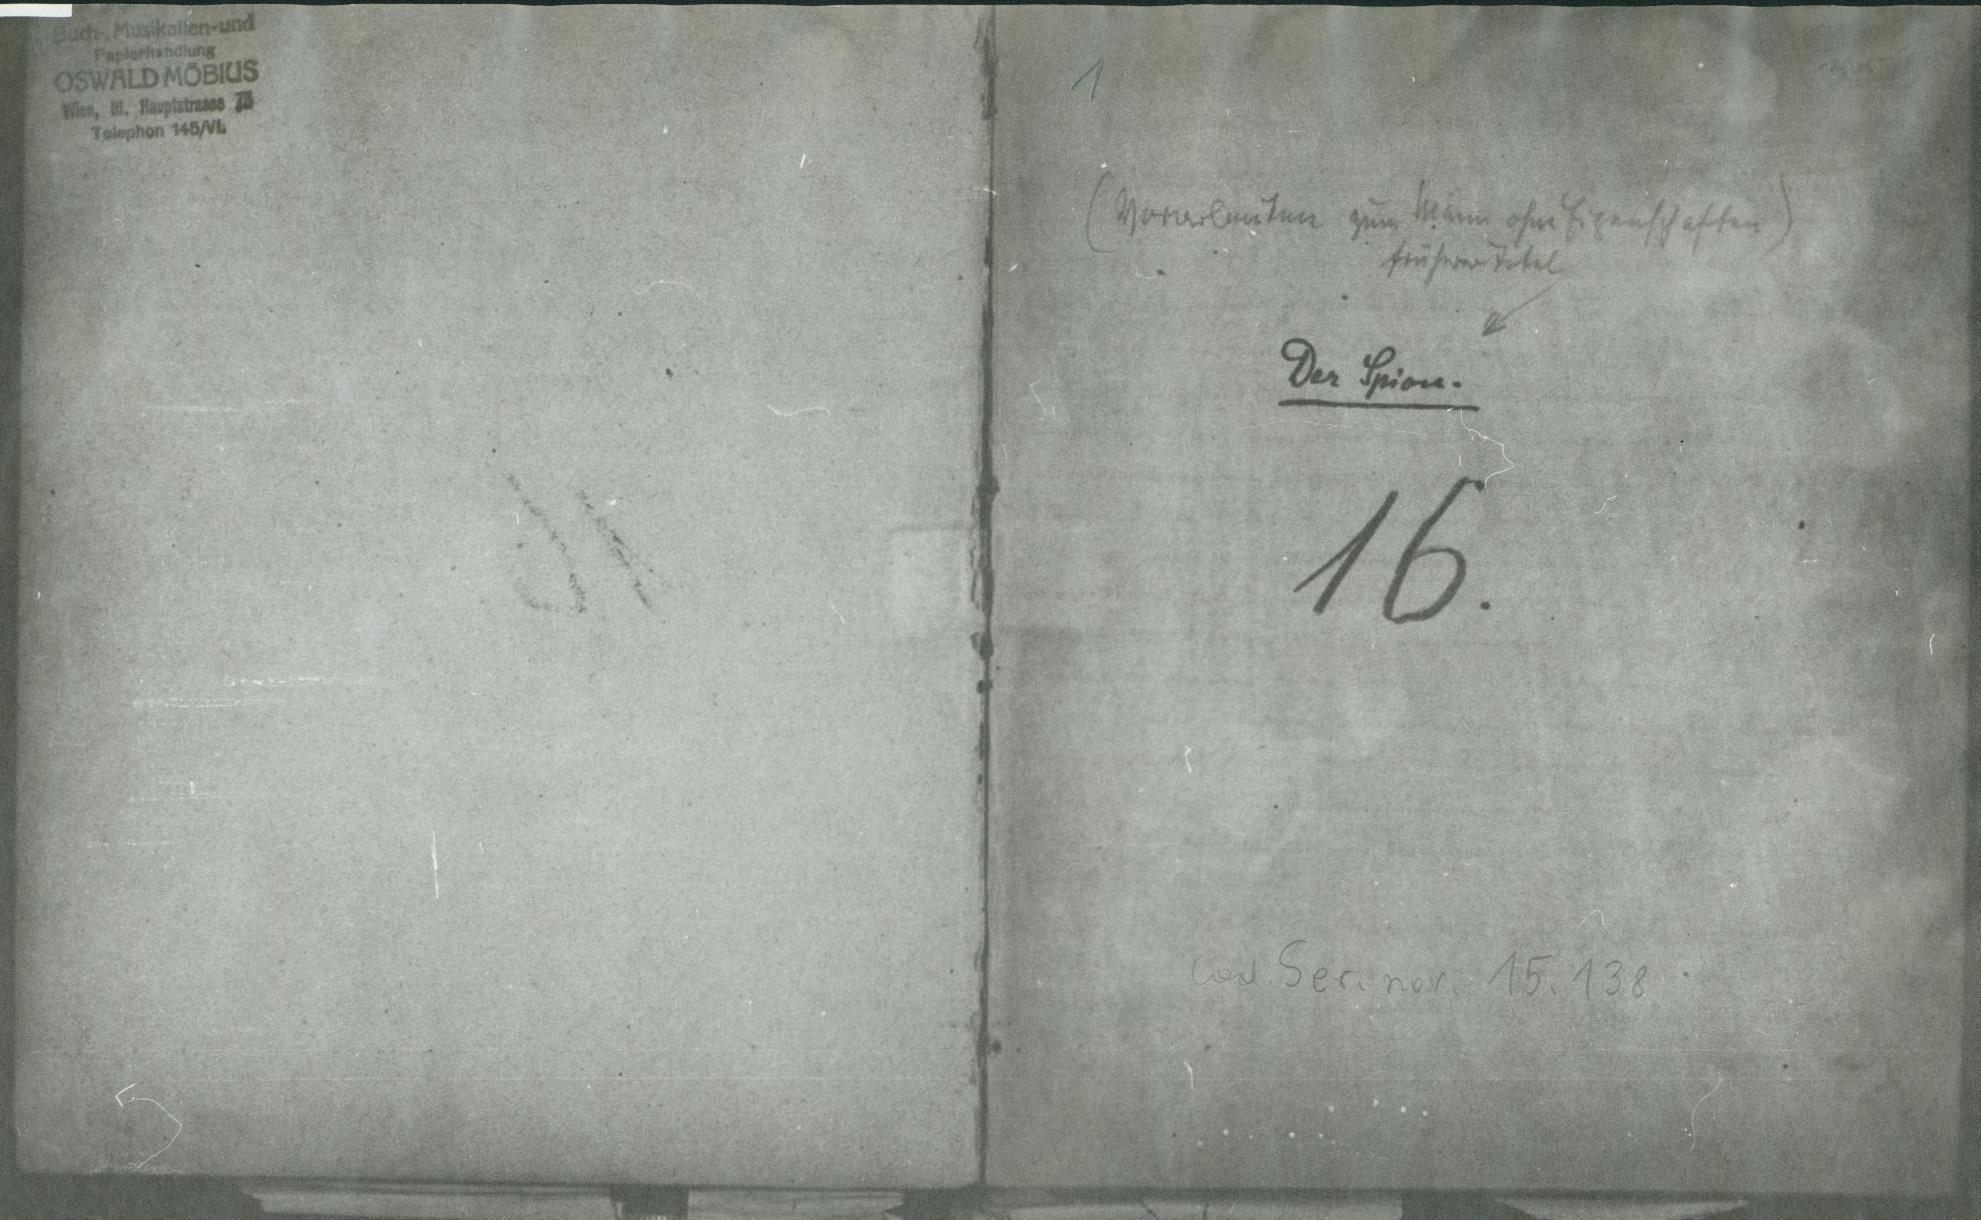 Buch-, Musikalien-und
Papierhandlung
OSWALD MÖBIUS
Wien, III. Hauptstrasse 73
Telephon 145/VI.
1
(Vorarbeiten zum Mann ohne Eigenschaften)
früherer Titel
Der Spion.
16.
Cod. Ser. nov. 15.138